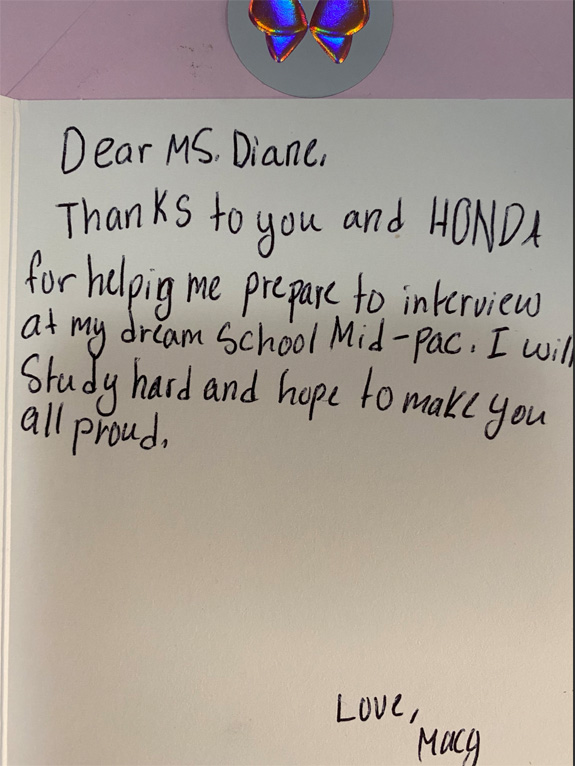 Dear MS. Diane,
Thanks to you and HONDA
for helpig me prepare to interview
at my dream School Mid-Pac. I will
Study hard and hope to make you
all proud.
Love,
Macy